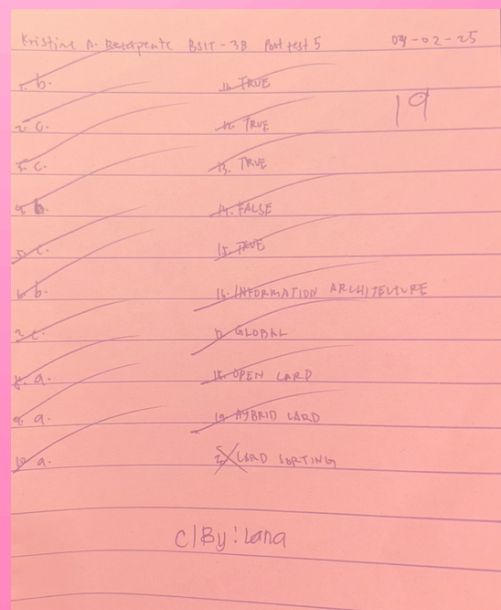 Kristine A. BSIT - 3B Post test 5 04-02-25
19
1. b.
2. c.
3. c.
4. b.
5. c.
6. b.
7. c.
8. a.
9. a.
10. a.
11. TRUE
12. TRUE
13. TRUE
14. FALSE
15. TRUE
16. INFORMATION ARCHITECTURE
17. GLOBAL
18. OPEN CARD
19. HYBRID CARD
CARD SORTING
C/By: Lana